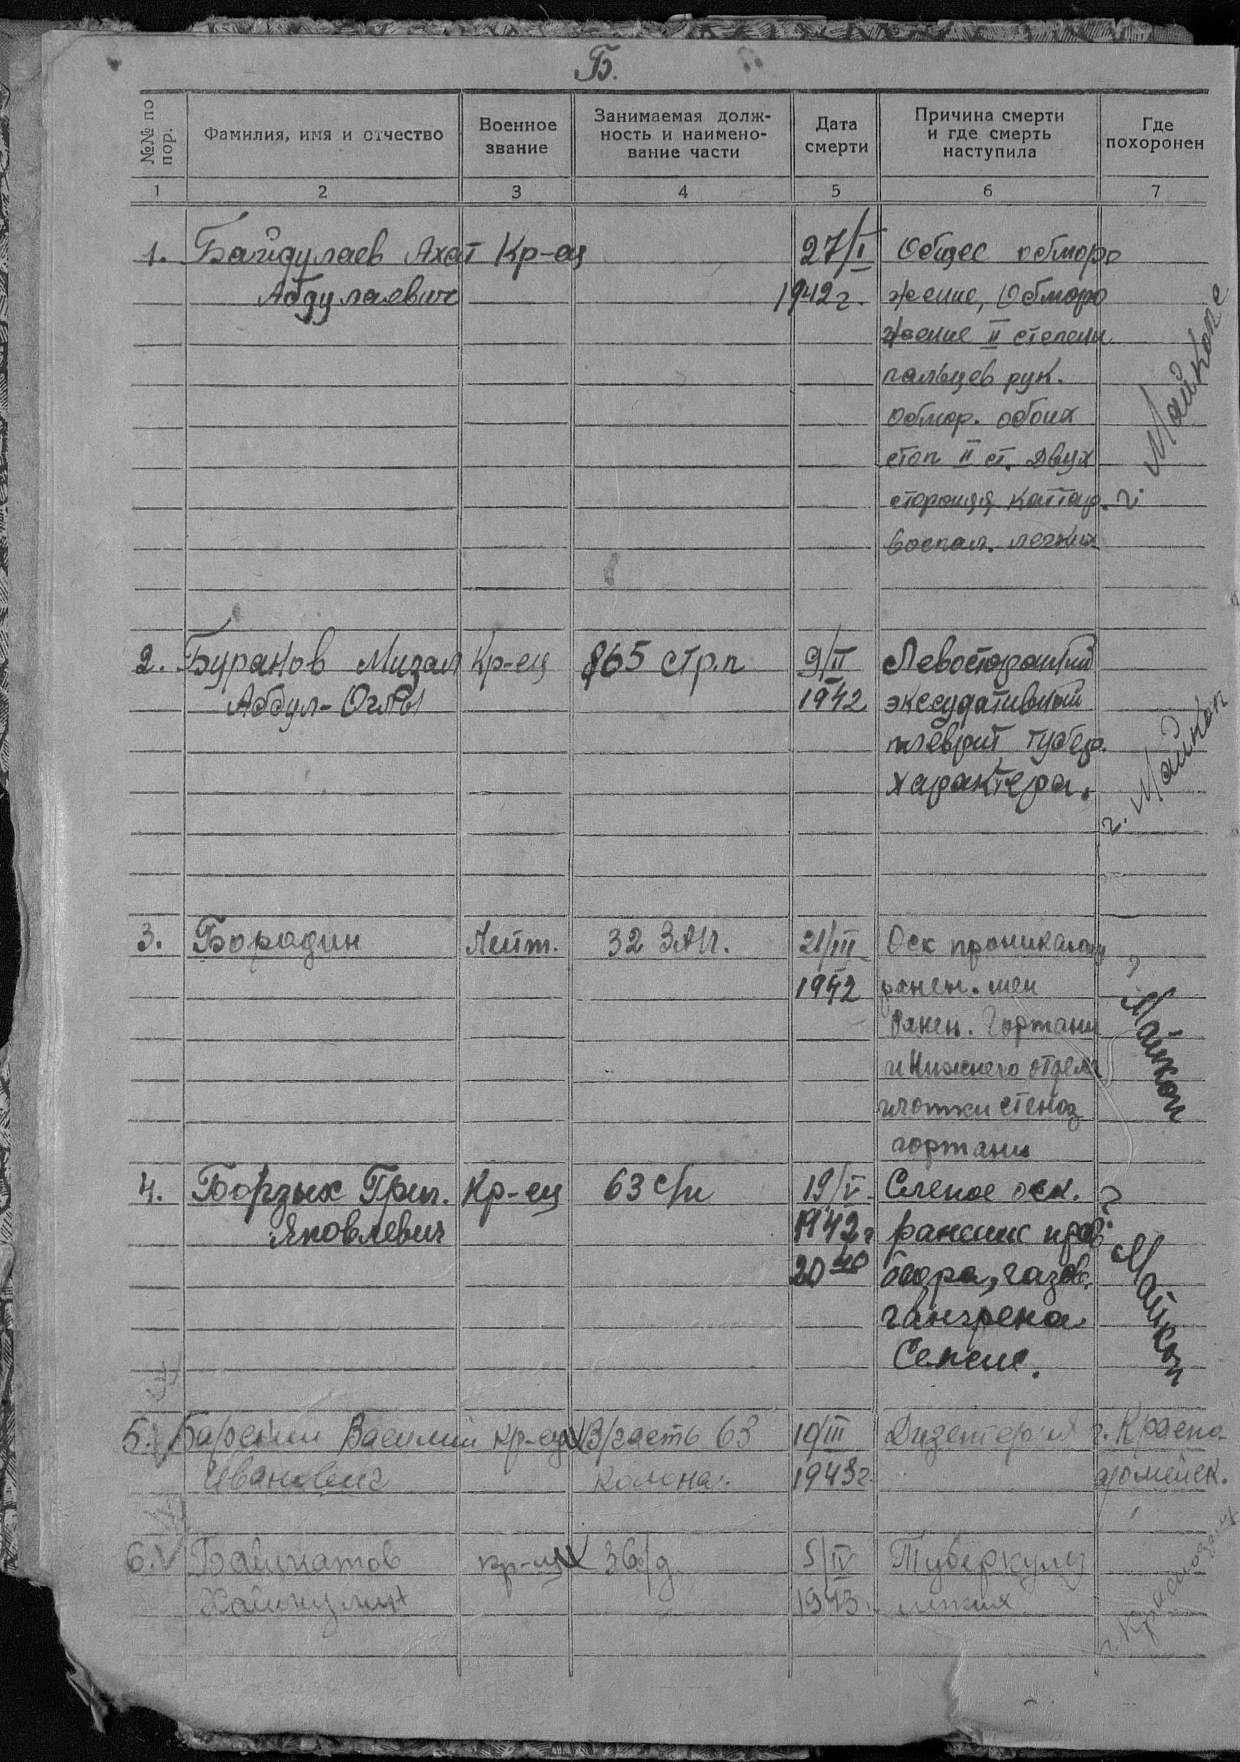 Б.
№№ по пор. Фамилия, имя и отчество Военное звание Занимаемая долж-ность и наимено-вание части Дата смерти Причина смерти и где смерть наступила Где похоронен
1 2 3 4 5 6 7
1. Байдулаев Ахат Кр-ец 27/I Общее обморо
Абдулаевич 1942 г. жение, Обморо
жение II степени
пальцев рук.
Обмор. обоих
стоп II ст. Двух
сторонняя катар.
воспал. легких
г. Майкопе
2. Буранов Мизал Кр-ец 865 стр.п 9/II Левосторонний
Абдул-Оглы 1942 экссудативный
плеврит тубер.
характера.
г. Майкоп
3. Бородин Лейт. 32 ЗАП. 21/III Оск проникающ
1942 ранен. шеи
Ранен. Гортани
и Нижнего отдела
глотки стеноз
гортани
г. Майкоп
4. Борзых Григ. Кр-ец 63 с/п 19/V Слепое оск.
Яковлевич 1942 г ранение прав.
20 40 бедра, газов.
гангрена
Сепсис.
г. Майкоп
5. Василий кр-ец В/часть 63 10/III Дизентерия г. Красно
Иванович колона. 1943 г. армейск.
6. кр-ец 5/IV Туберкулез
1943. легких